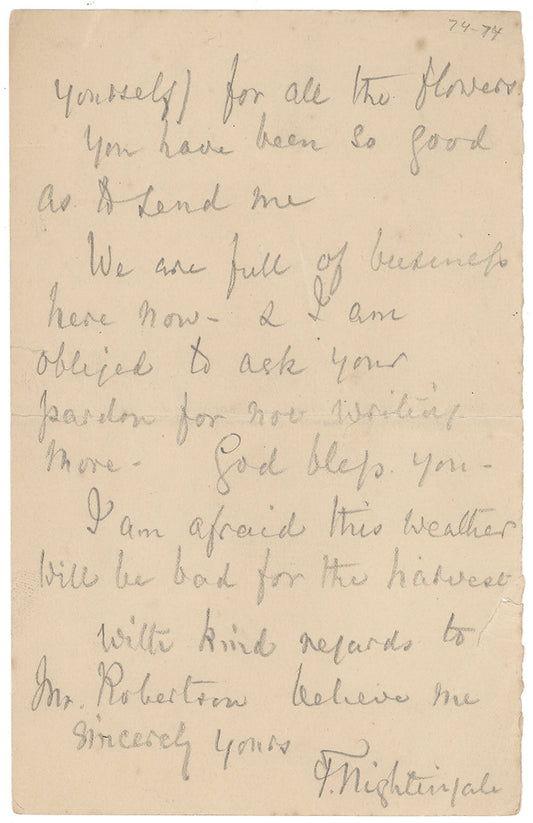 74-74
yourself) for all the flowers
You have been so good
as to send me
We are full of business
here now - & I am
obliged to ask your
pardon for not writing
more - God bless you -
I am afraid this weather
will be bad for the harvest
With kind regards to
Mr. Robertson believe me
sincerely yours
F. Nightingale